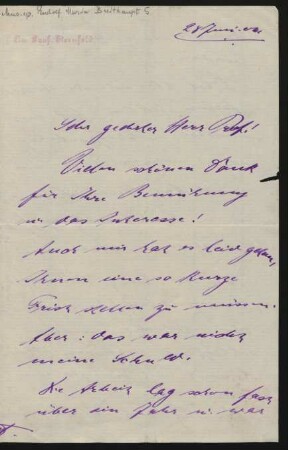 Mus.ep. Rudolf Maria Breithaupt 5
An Prof. Sternfeld
28 Juni
Sehr geehrter Herr Prof!
Vielen schönen Dank
für Ihre Bemühung
u das Interesse!
Auch mir hat es leid gethan,
Ihnen eine so kurze
Frist stellen zu müssen.
Aber: das war nicht
meine Schuld.
Die Arbeit lag schon fast
über ein Jahr u. war